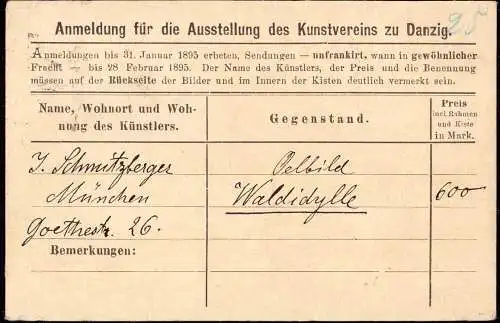 Anmeldung für die Ausstellung des Kunstvereins zu Danzig.
25
Anmeldungen bis 31. Januar 1895 erbeten, Sendungen — unfrankirt, wann in gewöhnlicher
Fracht — bis 28 Februar 1895. Der Name des Künstlers, der Preis und die Benennung
müssen auf der Rückseite der Bilder und im Innern der Kisten deutlich vermerkt sein.
Name, Wohnort und Woh-
nung des Künstlers.
Gegenstand.
Preis
incl. Rahmen
und Kiste
in Mark.
J. Schmitzberger
Oelbild
München
Waldidylle
600
Goethestr. 26.
Bemerkungen: